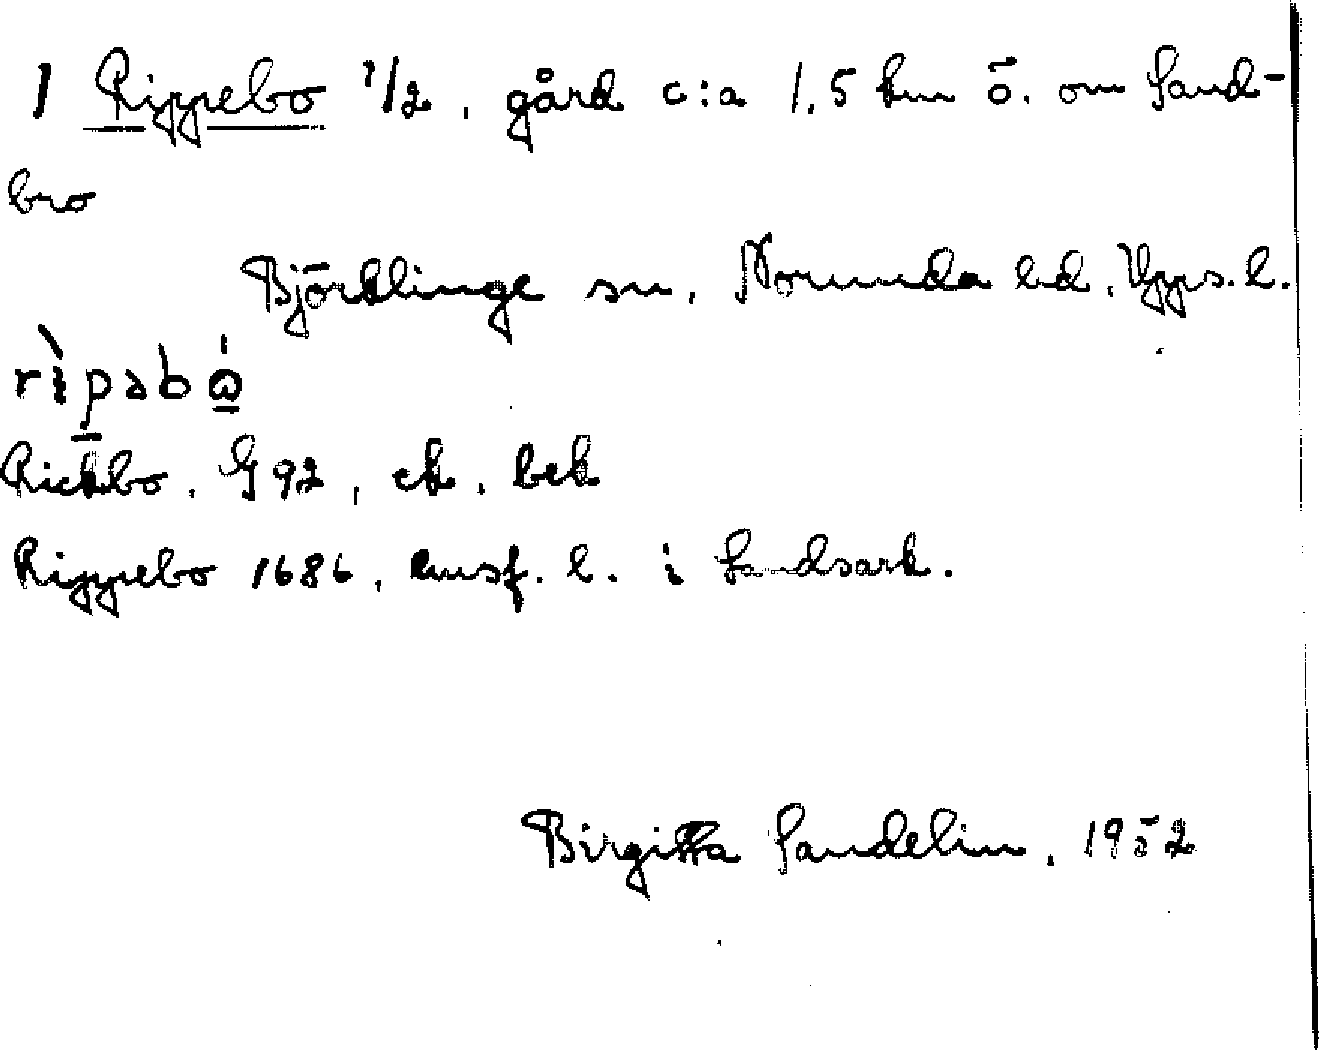 1 Rippebo 1/2, gård c:a 1,5 km ö. om Sand-
bro
Björklinge sn, Norunda hd, Upps. l.
rìpəbώ̲
Rickbo, G 92, ek, bek
Rippebo 1686, l. i Landsark.
Birgitta Sandelin, 1952